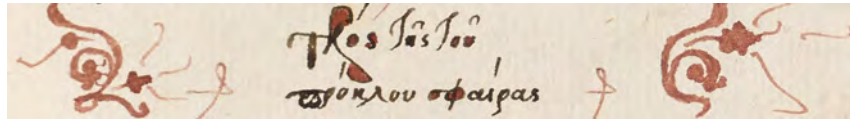 τέλος τῆς τοῦ
πρόκλου σφαίρας